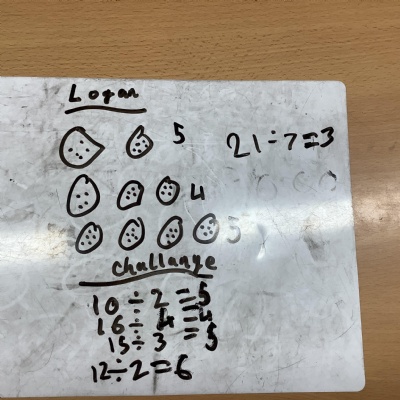 Logan
5
21÷7=3
4
5
challange
10÷2=5
16÷4=4
15÷3=5
12÷2=6